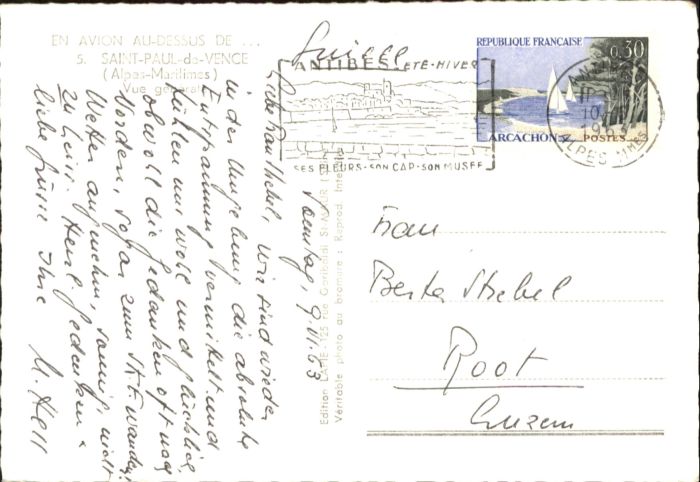 EN AVION AU-DESSUS DE ...
5. SAINT-PAUL-de-VENCE
(Alpes-Maritimes)
Vue générale
Suisse
ANTIBES ÉTÉ-HIVER
SES FLEURS-SON CAP-SON MUSÉE
REPUBLIQUE FRANÇAISE
0,30
ARCACHON
POSTES
ALPES MMES
Edition LAPIE 125 rue Garibaldi St-MAUR
Véritable photo au bromure : Reprod. Interdite
Sonntag, 9.VI.63
Liebe Frau Stebel, wir sind wieder
in der Umgebung, die absolute
Entspannung vermittelt und
fühlen uns wohl und glücklich,
obwohl die Gedanken oft nach
Norden, sogar zum wandern.
Wetter angenehm, sonnig, nicht
zu heiss. Herzl. Gedenken &
liebe Grüsse Ihre
Frau
Berta Stebel
Root
Luzern